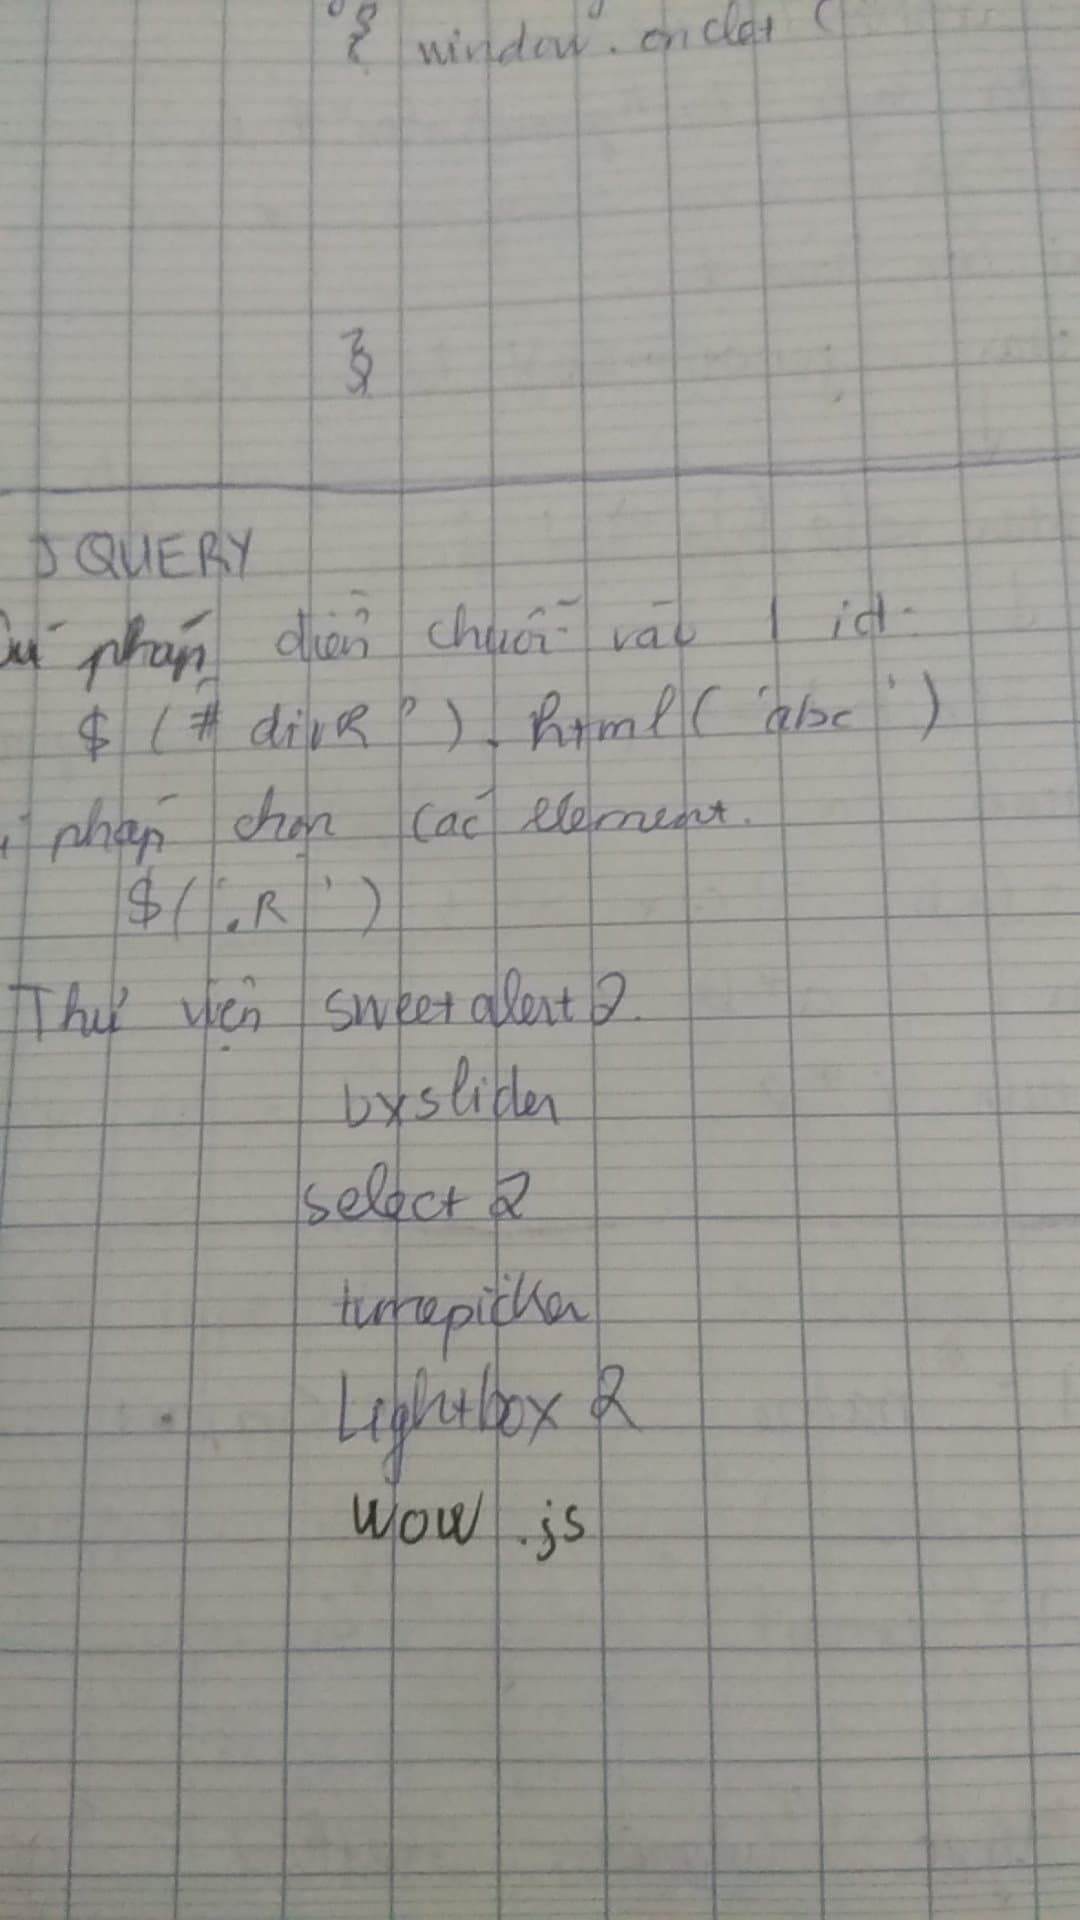 { window.
}
JQUERY
Cú pháp điền chuỗi vào 1 id:
$ ('# divR').html('abc')
pháp chọn các element.
$('.R')
Thư viện sweet alert 2.
bxslider
select 2
timepicker
Lightbox 2
wow.js